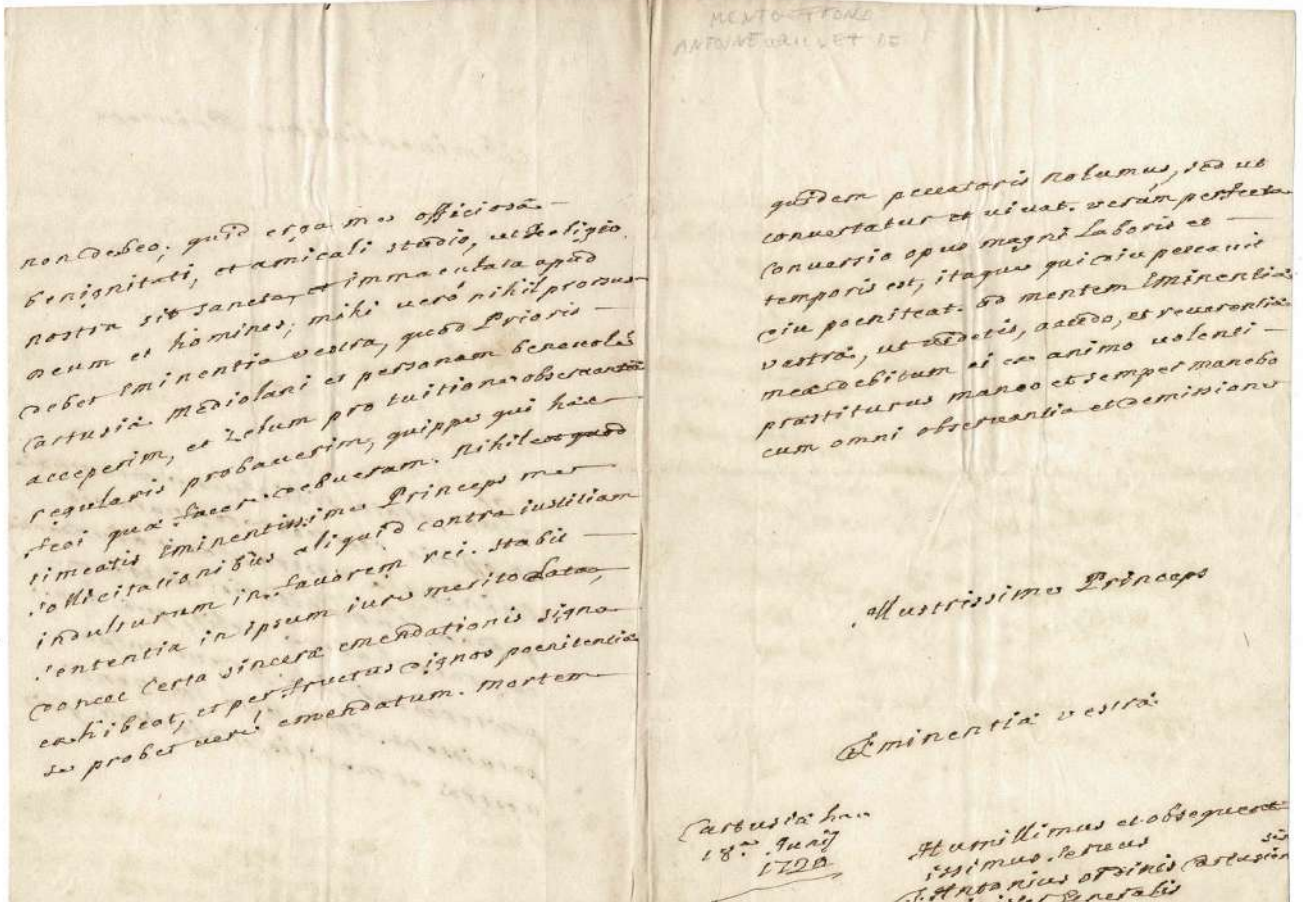 non debeo; quid erga me officiosâ
benignitati, et amicali studio, ut Religio
nostra sit sancta, et immaculata apud
Deum et homines; mihi verò nihil prorsus
debet Eminentia vestra, quòd Prioris
Cartusiæ Mediolani et personam benevolè
acceperim, et zelum pro tuitione observantiæ
regularis probaverim, quippe qui hæc
feci quæ facere debueram. Nihil est quod
timeatis Eminentissime Princeps me
sollicitationibus aliquid contra iustitiam
indulturum in favorem rei. stabit
sententia in ipsum iure merito lata,
donec certa sinceræ emendationis signa
exhibeat, et per fructus dignos poenitentiæ
se probet verè emendatum. Mortem
MENTO
ANTOINE DE
quidem peccatoris nolumus, sed ut
convertatur et vivat. verùm perfecta
conversio opus magni laboris et
temporis est, itaque qui diu peccavit
diu poeniteat. ad mentem Eminentiæ
vestræ, ut videtis, accedo, et reverentiæ
meæ debitum ei ex animo volenti
præstiturus maneo et semper manebo
cum omni observantia et demissione
Illustrissime Princeps
Eminentiæ vestræ
Cartusiæ hac
18ª Junij
1720
Humillimus et obsequent
issimus servus
F. Antonius ordinis Cartusien
sis
Generalis